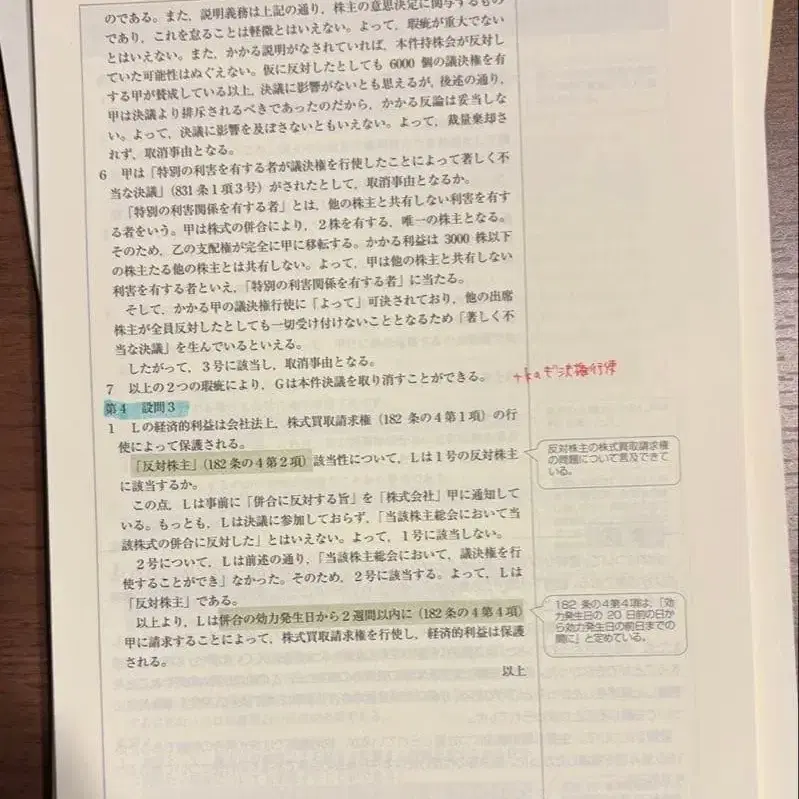 のである。また，説明義務は上記の通り，株主の意思決定に関与するもの
であり，これを怠ることは軽微とはいえない。よって，瑕疵が重大でない
とはいえない。また，かかる説明がなされていれば，本件持株会が反対し
ていた可能性はぬぐえない。仮に反対したとしても 6000 個の議決権を有
する甲が賛成している以上，決議に影響がないとも思えるが，後述の通り，
甲は決議より排斥されるべきであったのだから，かかる反論は妥当しな
い。よって，決議に影響を及ぼさないともいえない。よって，裁量棄却さ
れず，取消事由となる。
6 甲は「特別の利害を有する者が議決権を行使したことによって著しく不
当な決議」（831 条 1 項 3 号）がされたとして，取消事由となるか。
「特別の利害関係を有する者」とは，他の株主と共有しない利害を有す
る者をいう。甲は株式の併合により，2 株を有する，唯一の株主となる。
そのため，乙の支配権が完全に甲に移転する。かかる利益は 3000 株以下
の株主たる他の株主とは共有しない。よって，甲は他の株主と共有しない
利害を有する者といえ，「特別の利害関係を有する者」に当たる。
そして，かかる甲の議決権行使に「よって」可決されており，他の出席
株主が全員反対したとしても一切受け付けないこととなるため「著しく不
当な決議」を生んでいるといえる。
したがって，3 号に該当し，取消事由となる。
7 以上の 2 つの瑕疵により，G は本件決議を取り消すことができる。
決権行使
第 4 設問 3
1 L の経済的利益は会社法上，株式買取請求権（182 条の 4 第 1 項）の行
使によって保護される。
「反対株主」（182 条の 4 第 2 項）該当性について，L は 1 号の反対株主
に該当するか。
反対株主の株式買取請求権
の問題について言及できて
いる。
この点，L は事前に「併合に反対する旨」を「株式会社」甲に通知して
いる。もっとも，L は決議に参加しておらず，「当該株主総会において当
該株式の併合に反対した」とはいえない。よって，1 号に該当しない。
2 号について，L は前述の通り，「当該株主総会において，議決権を行
使することができ」なかった。そのため，2 号に該当する。よって，L は
「反対株主」である。
以上より，L は併合の効力発生日から 2 週間以内に（182 条の 4 第 4 項）
甲に請求することによって，株式買取請求権を行使し，経済的利益は保護
される。
182 条の 4 第 4 項は，「効
力発生日の 20 日前の日か
ら効力発生日の前日までの
間に」と定めている。
以上